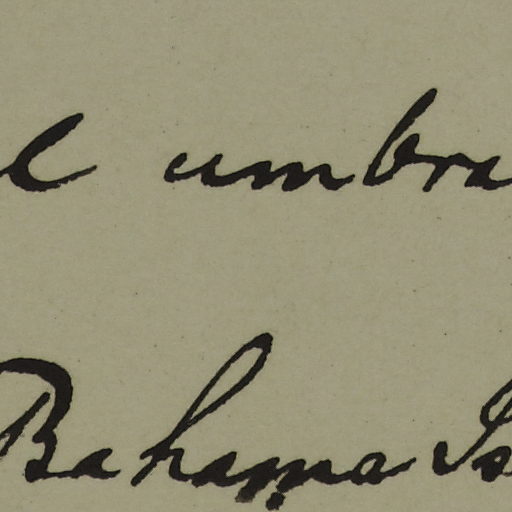 l umbra
Bahama Is